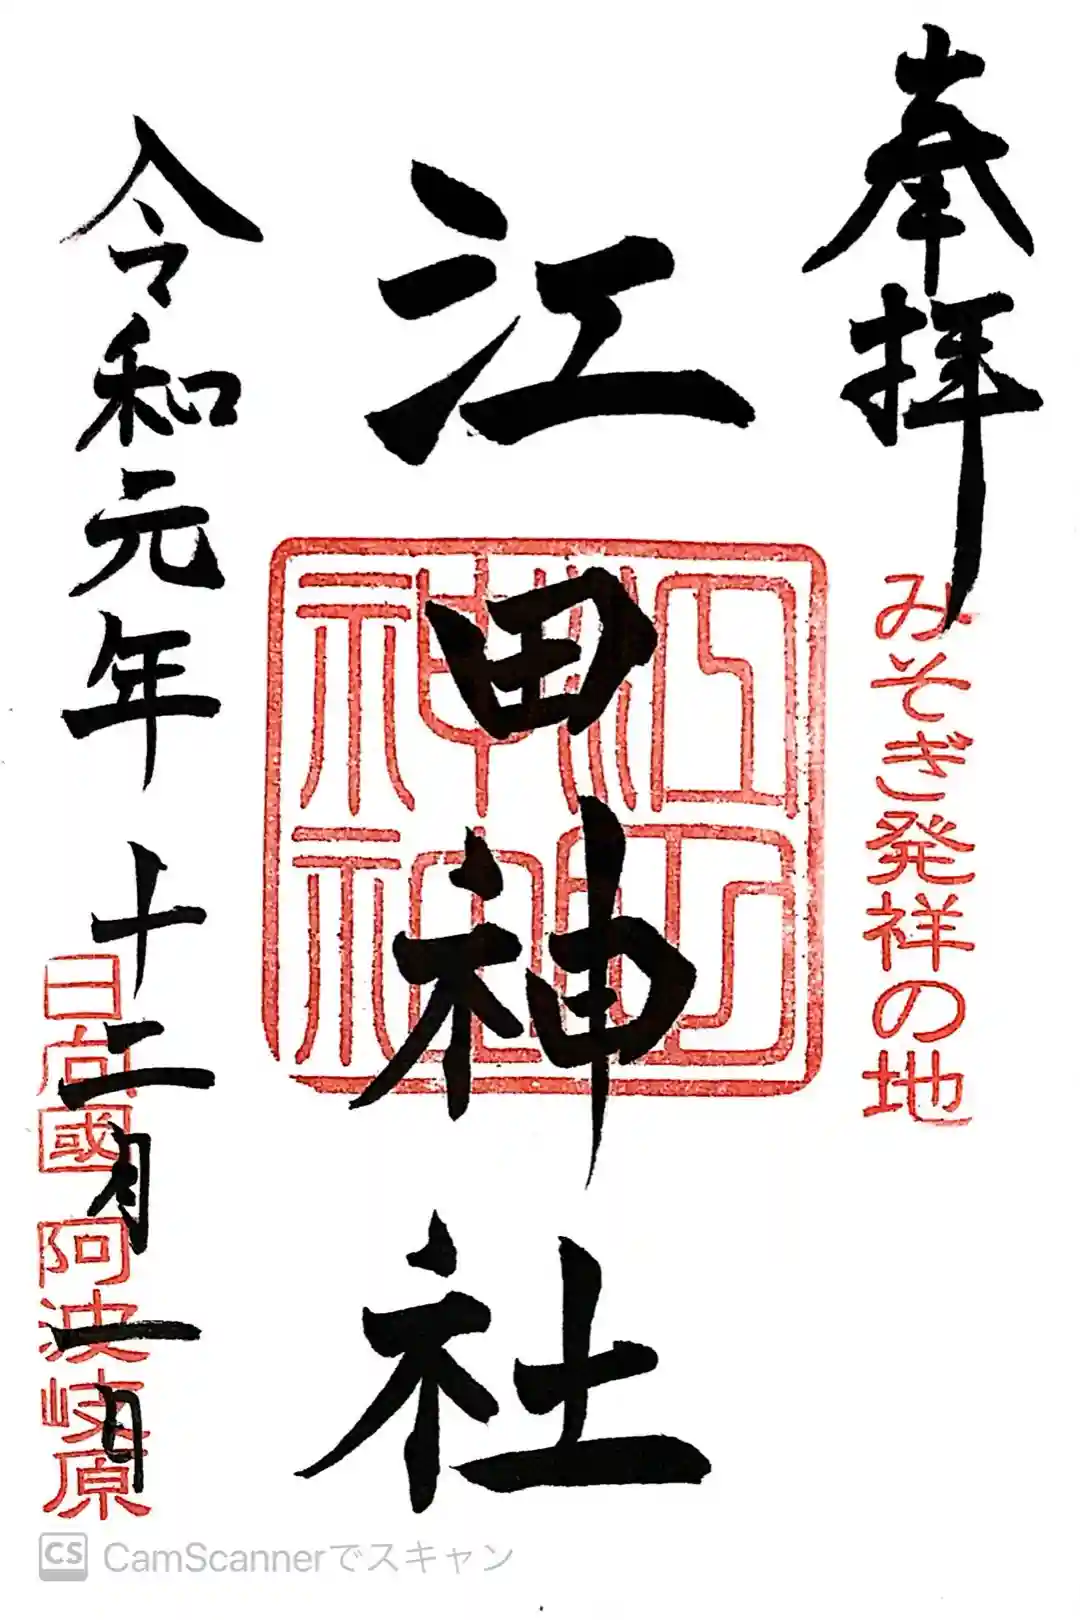 奉拝
みそぎ発祥の地
江田神社
令和元年十二月一日
日向國 阿波岐原
CS CamScannerでスキャン